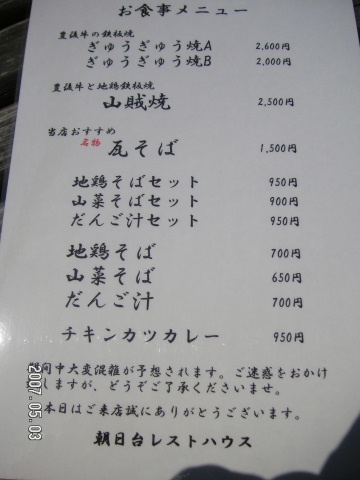 お食事メニュー
豊後牛の鉄板焼
ぎゅうぎゅう焼A 2,600円
ぎゅうぎゅう焼B 2,000円
豊後牛と地鶏鉄板焼
山賊焼 2,500円
当店おすすめ
名物 瓦そば 1,500円
地鶏そばセット 950円
山菜そばセット 900円
だんご汁セット 950円
地鶏そば 700円
山菜そば 650円
だんご汁 700円
チキンカツカレー 950円
期間中大変混雑が予想されます。ご迷惑をおかけ
しますが、どうぞご了承くださいませ。
本日はご来店誠にありがとうございます。
朝日台レストハウス
2007.05.03